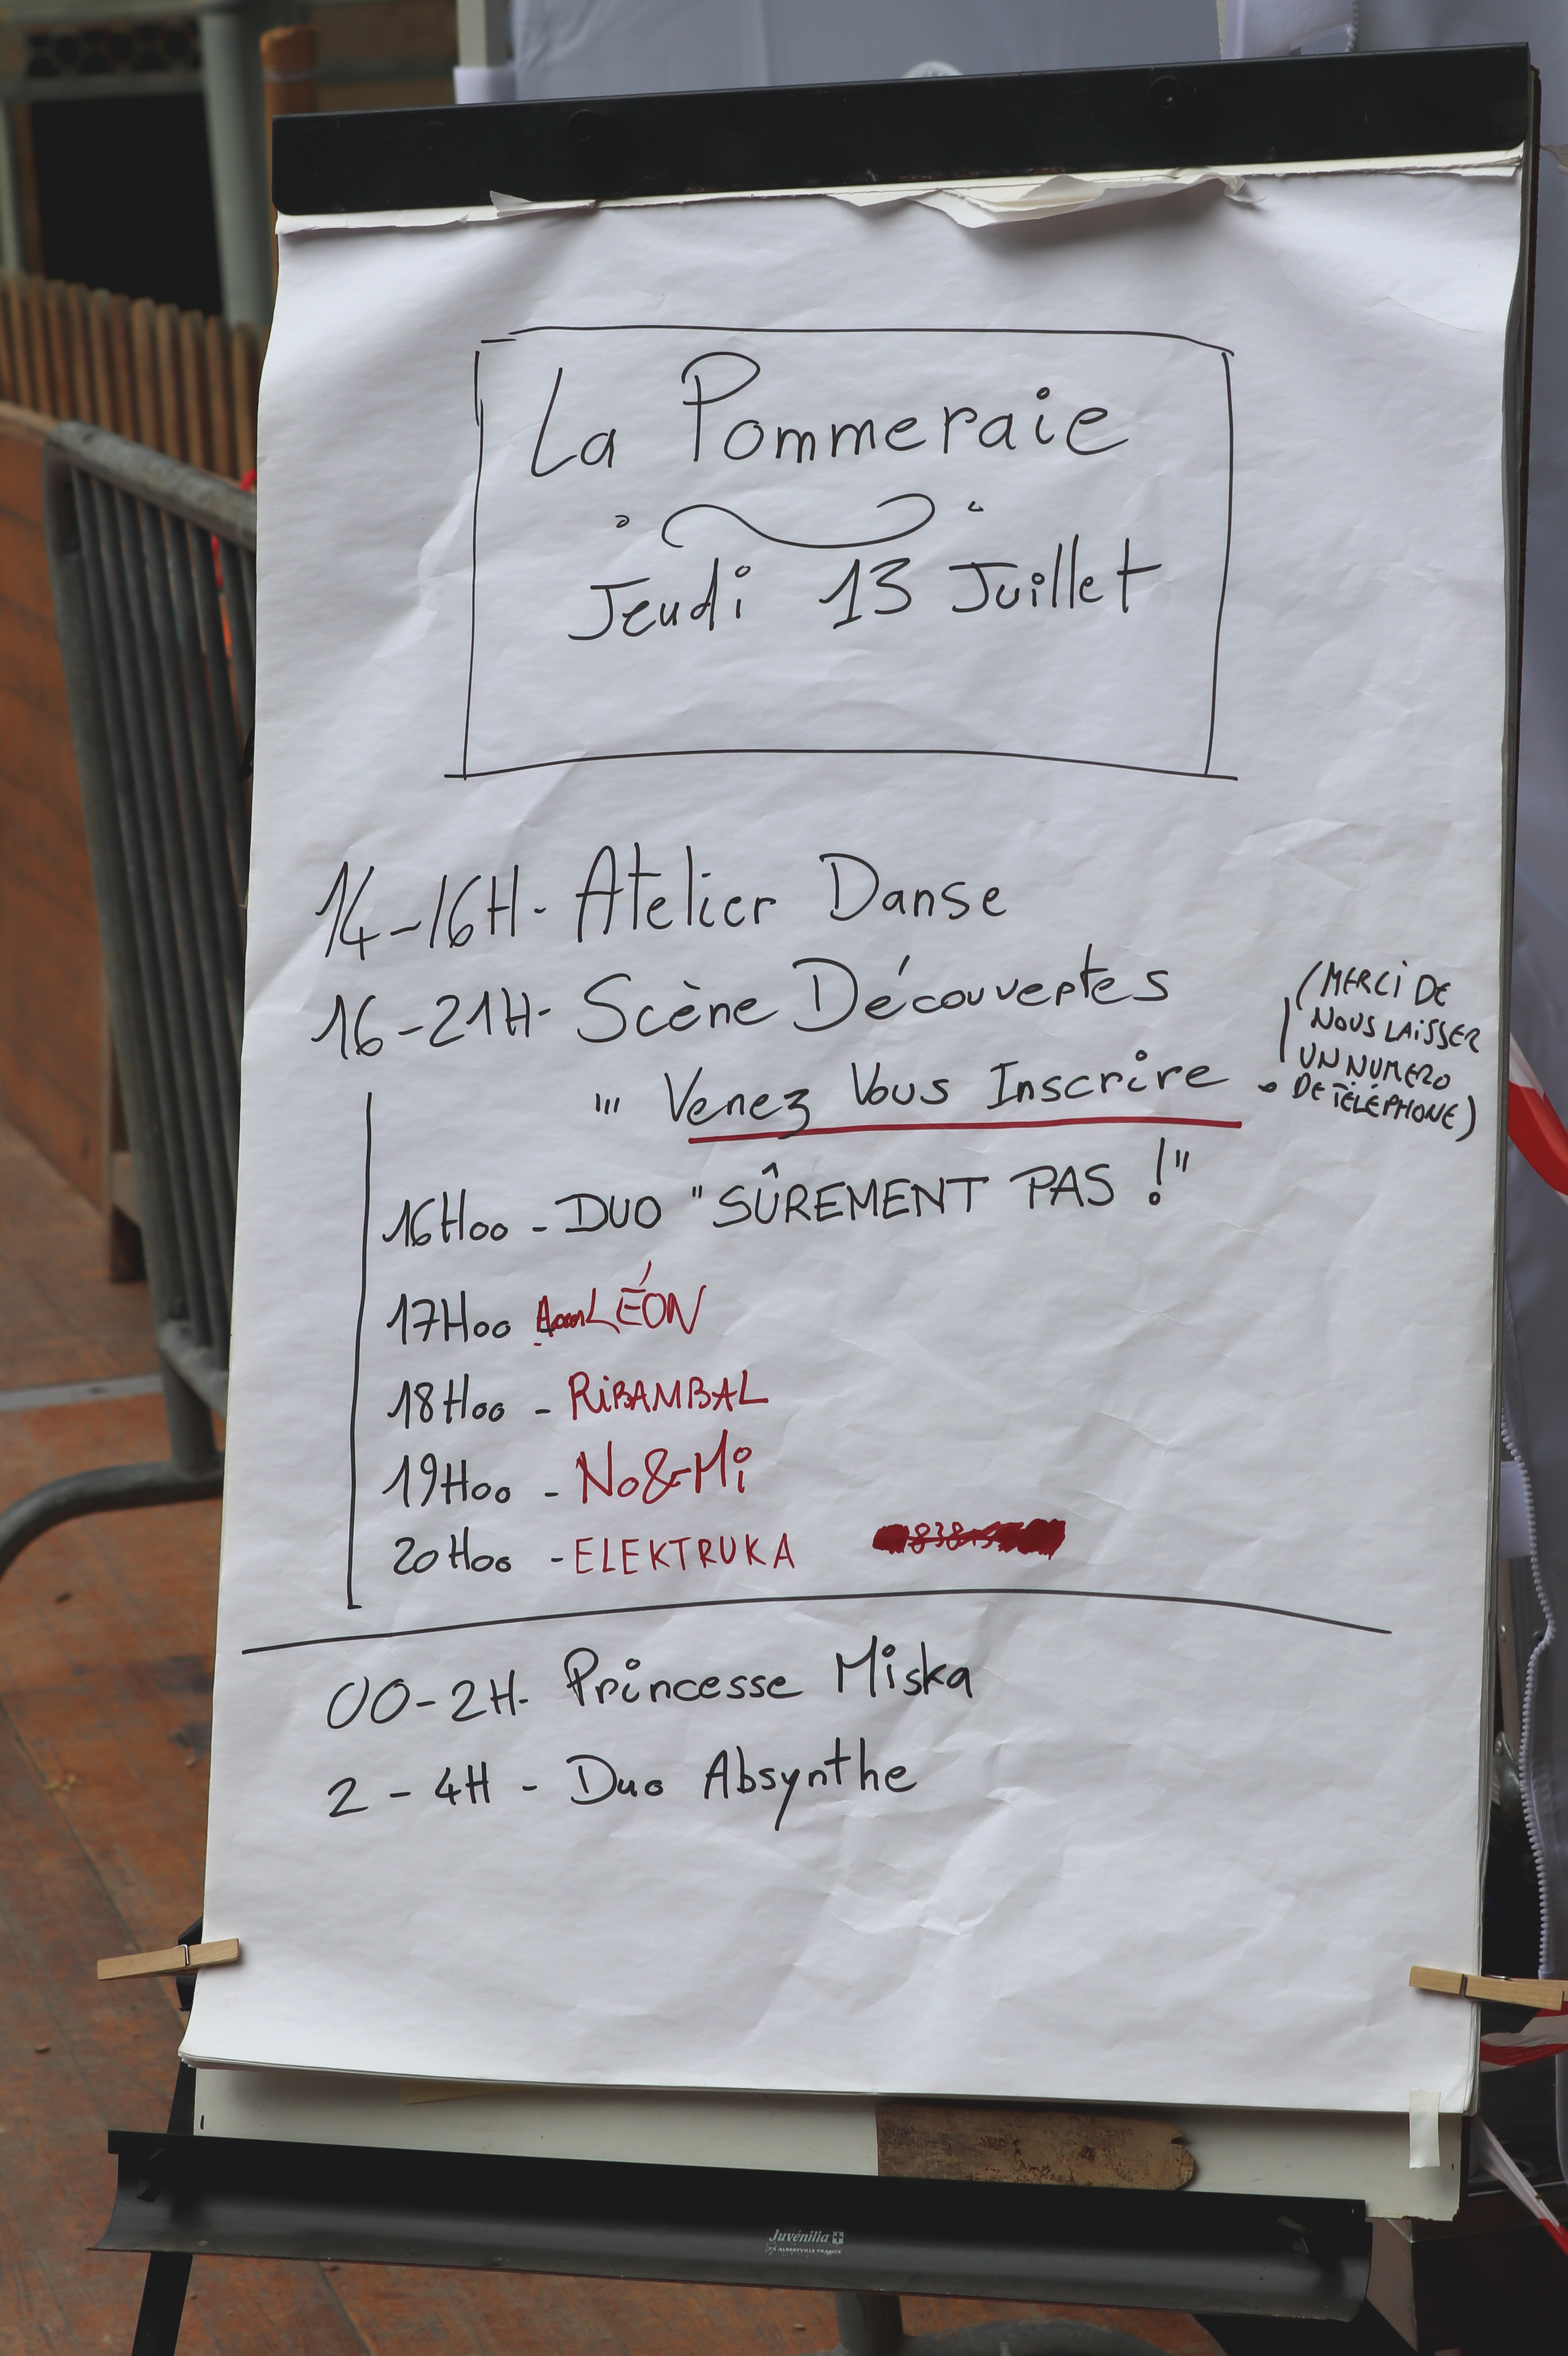 La Pommeraie
Jeudi 13 Juillet
14-16H- Atelier Danse
16-21H- Scène Découvertes
"' Venez Vous Inscrire
(MERCI DE
NOUS LAISSER
UN NUMERO
DE TÉLÉPHONE)
16H00 - DUO "SÛREMENT PAS !"
17H00 LÉON
18H00 - RiBAMBAL
19H00 - No&Mi
20H00 - ELEKTRUKA
00-2H- Princesse Miska
2 - 4H - Duo Absynthe
Juvénilia
ALBERTVILLE FRANCE